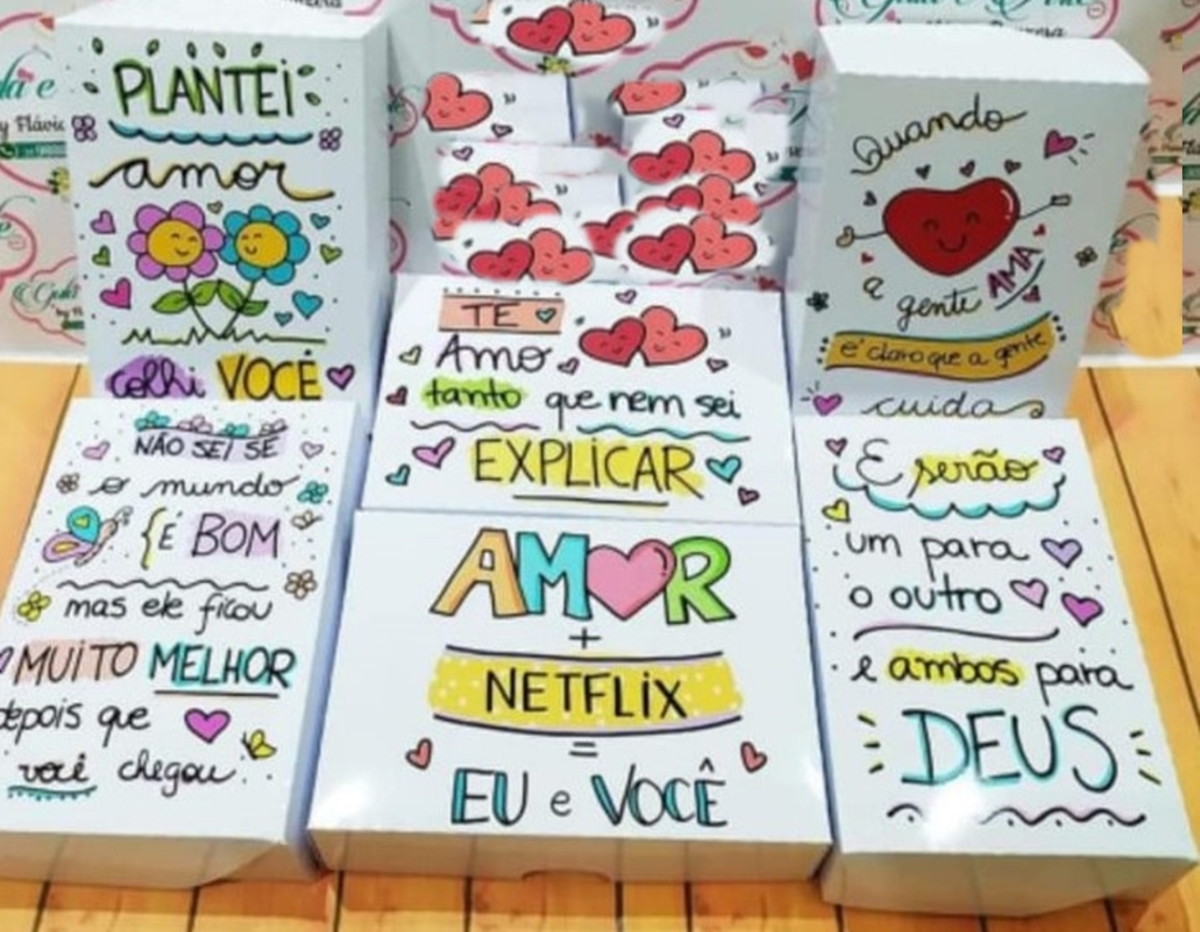 PLANTEI
amor
colhi VOCÊ
Quando
a gente AMA
é claro que a gente
cuida
TE
Amo
tanto que nem sei
EXPLICAR
NÃO SEI SE
o mundo
É BOM
mas ele ficou
MUITO MELHOR
depois que
você chegou
AMOR
+
NETFLIX
=
EU e VOCÊ
E serão
um para
o outro
e ambos para
DEUS